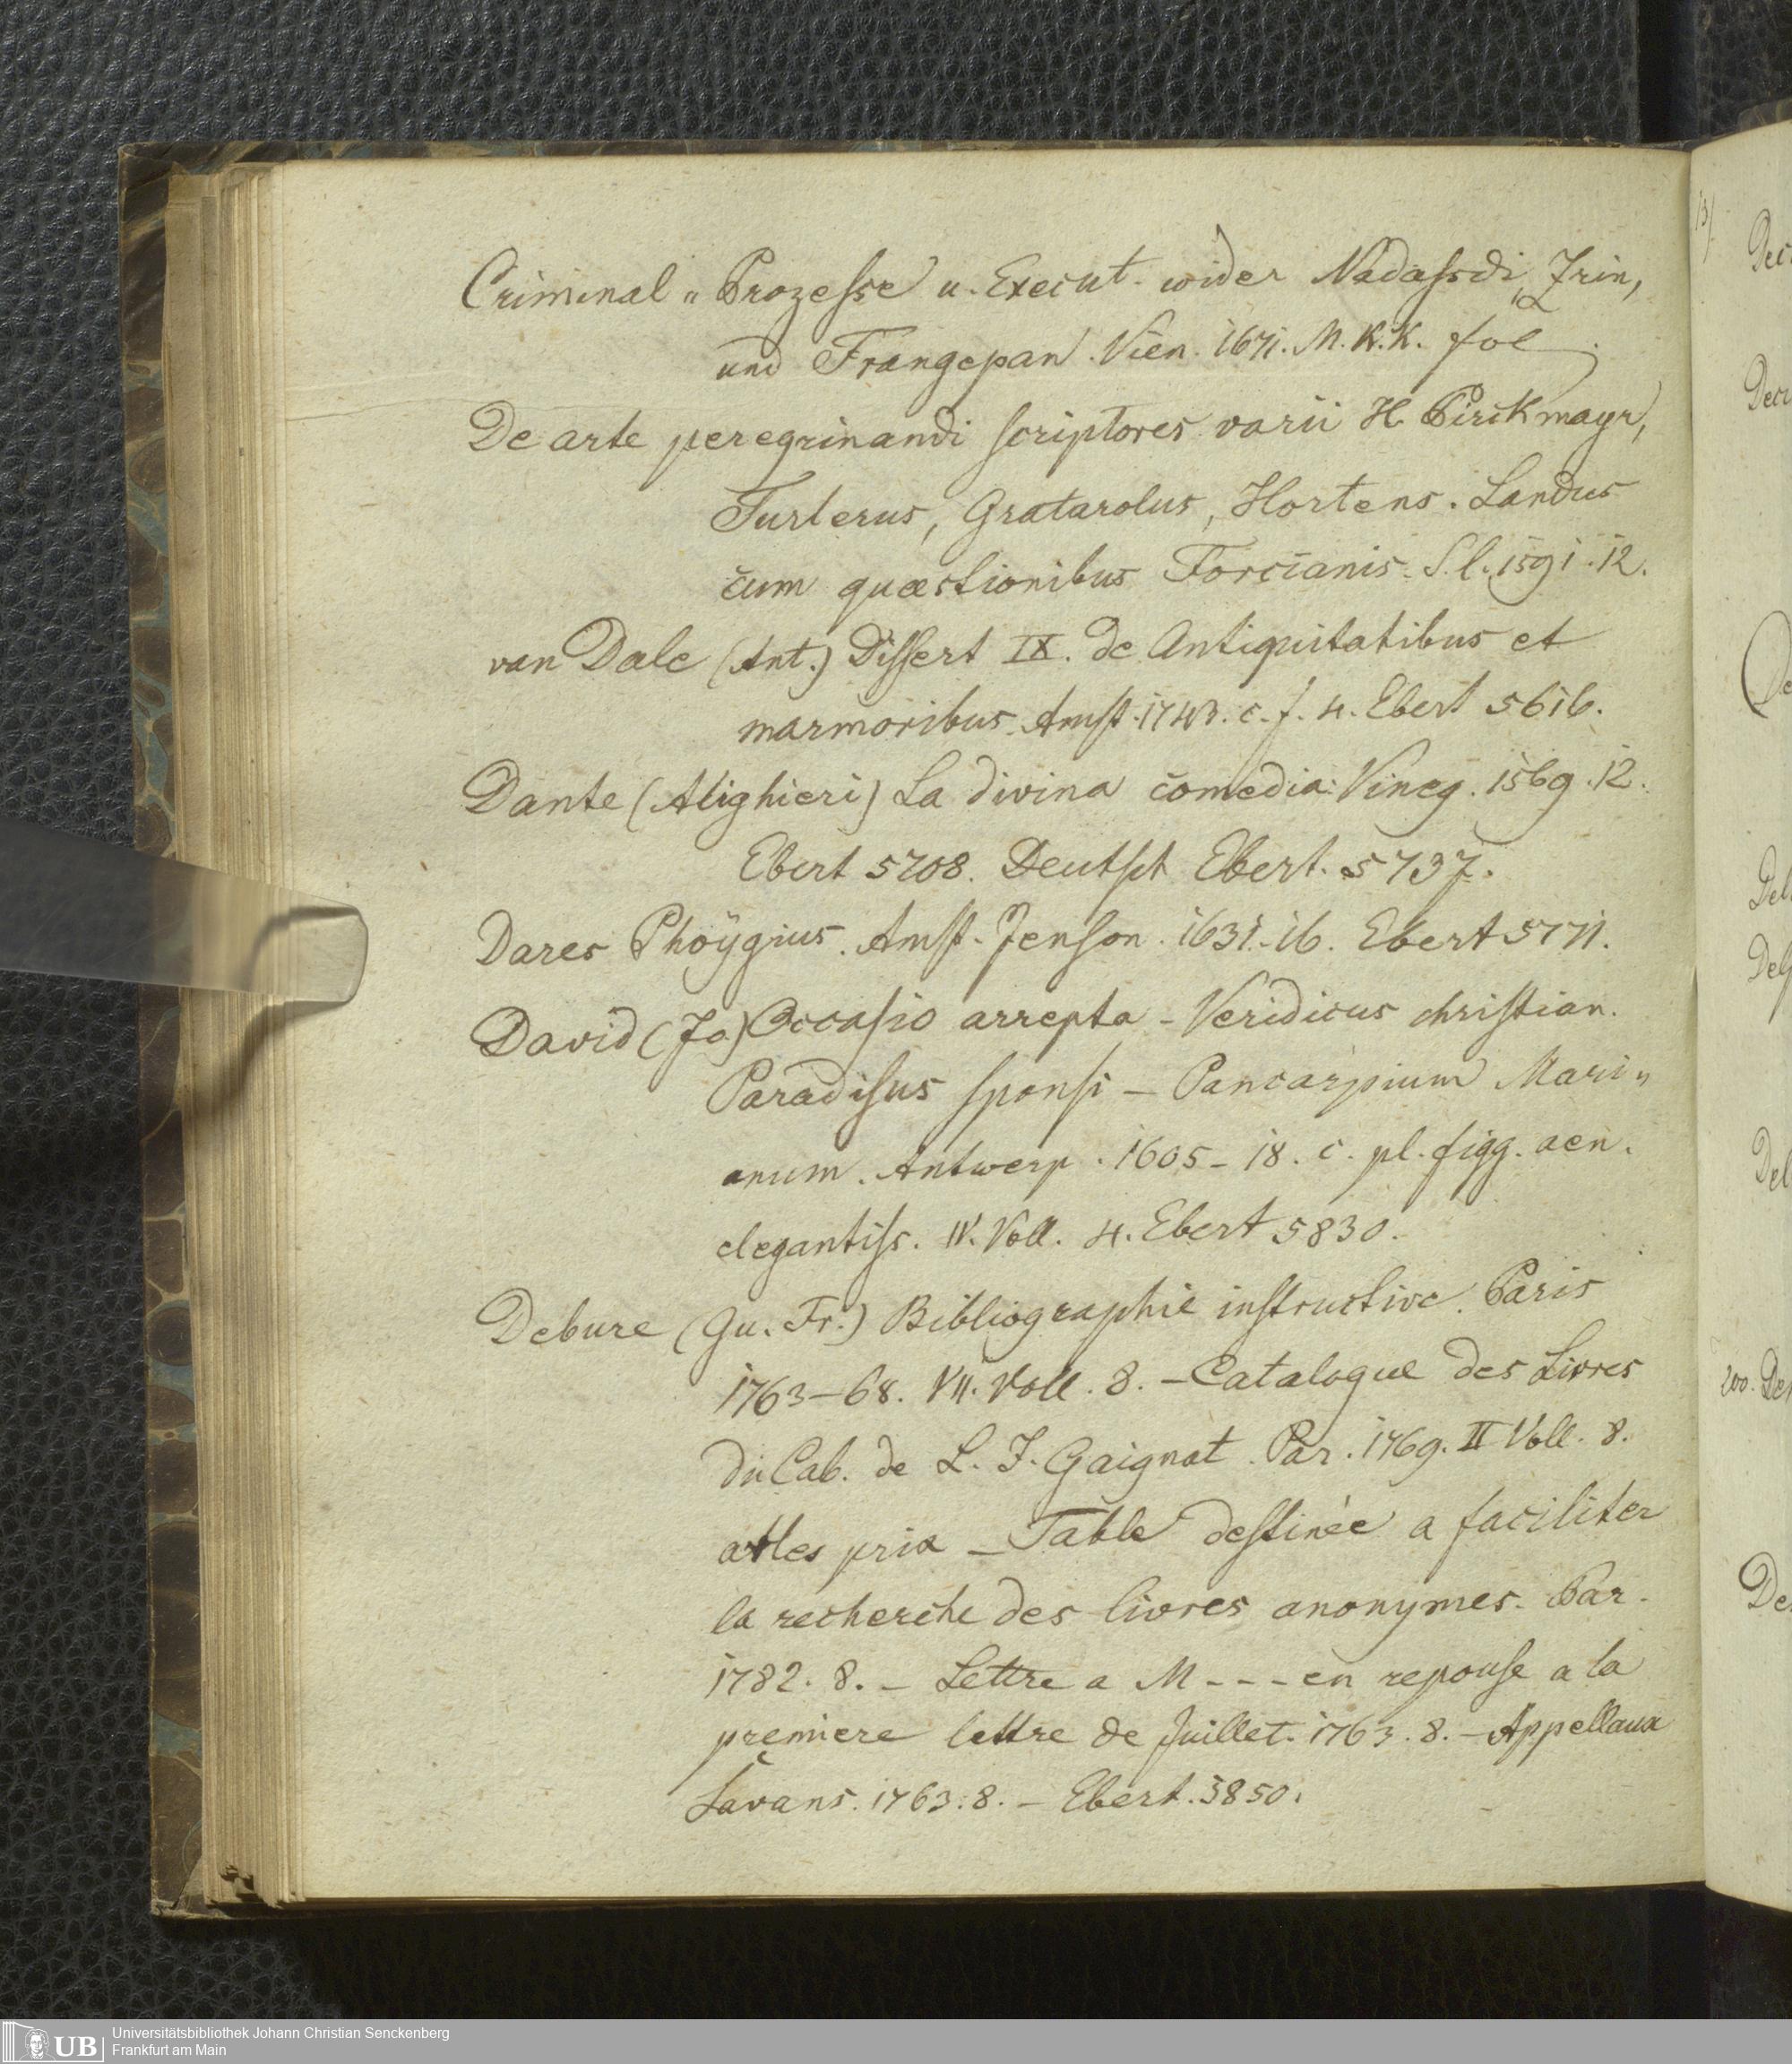 Criminal „ Prozeſse u. Execut. wider Nadaſsdi, Zrin,
und Frangepan. Vien. 1671. M. K.K. fol.
De arte peregrinandi ſcriptores varii H. Pirckmayr,
Turlerus, Gratarolus, Hortens. Landus
cum quæstionibus Forcianis. S. l. 1591. 12.
van Dale (Ant.) Diſſert IX. de Antiquitatibus et
marmoribus. Amſt. 1743. c. f. 4. Ebert 5616.
Dante (Alighieri) La divina comedia. Vineg. 1569. 12.
Ebert 5708. Deutſch Ebert. 5737.
Dares Phoÿgius. Amſt. Jenſon. 1631. 16. Ebert 5771.
David (Jo.) Occaſio arrepta - Veridicus chriſtian.
Paradiſus ſponſi - Pancarpium Mari„
anum. Antwerp. 1605-18. c. pl. figg. aen.
elegantiſs. IV. Voll. 4. Ebert 5830.
Debure (Gu. Fr.) Bibliographie inſtructive. Paris
1763-68. VII. Voll. 8. - Catalogue des Livres
du Cab. de L. J. Gaignat. Par. 1769. II Voll. 8.
a. les prix - Table deſtinée a faciliter
la recherche des livres anonymes. Par.
1782. 8. - Lettre a M - - - en repouſe a la
premiere lettre de Juillet. 1763. 8. - Appellaux
Savans. 1763. 8. - Ebert. 5850.
200. De
UB
Universitätsbibliothek Johann Christian Senckenberg
Frankfurt am Main